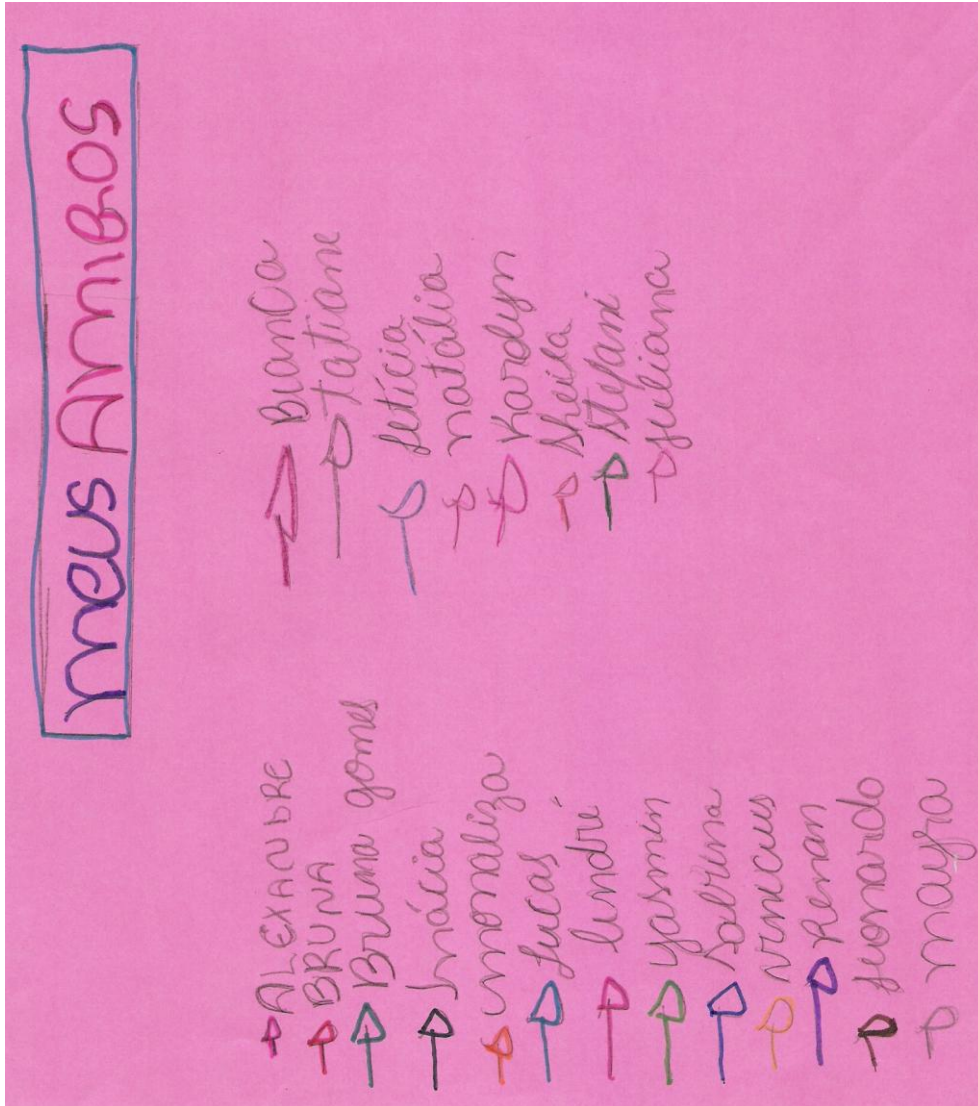 meus Amigos
ALEXANDRE
BRUNA
Bruna gomes
Inácia
monaliza
Lucas
André
yasmin
Sabrina
vinicius
Renan
Leonardo
mayra
Bianca
Tatiane
Letícia
natália
Karolyn
Sheila
Stefani
Juliana